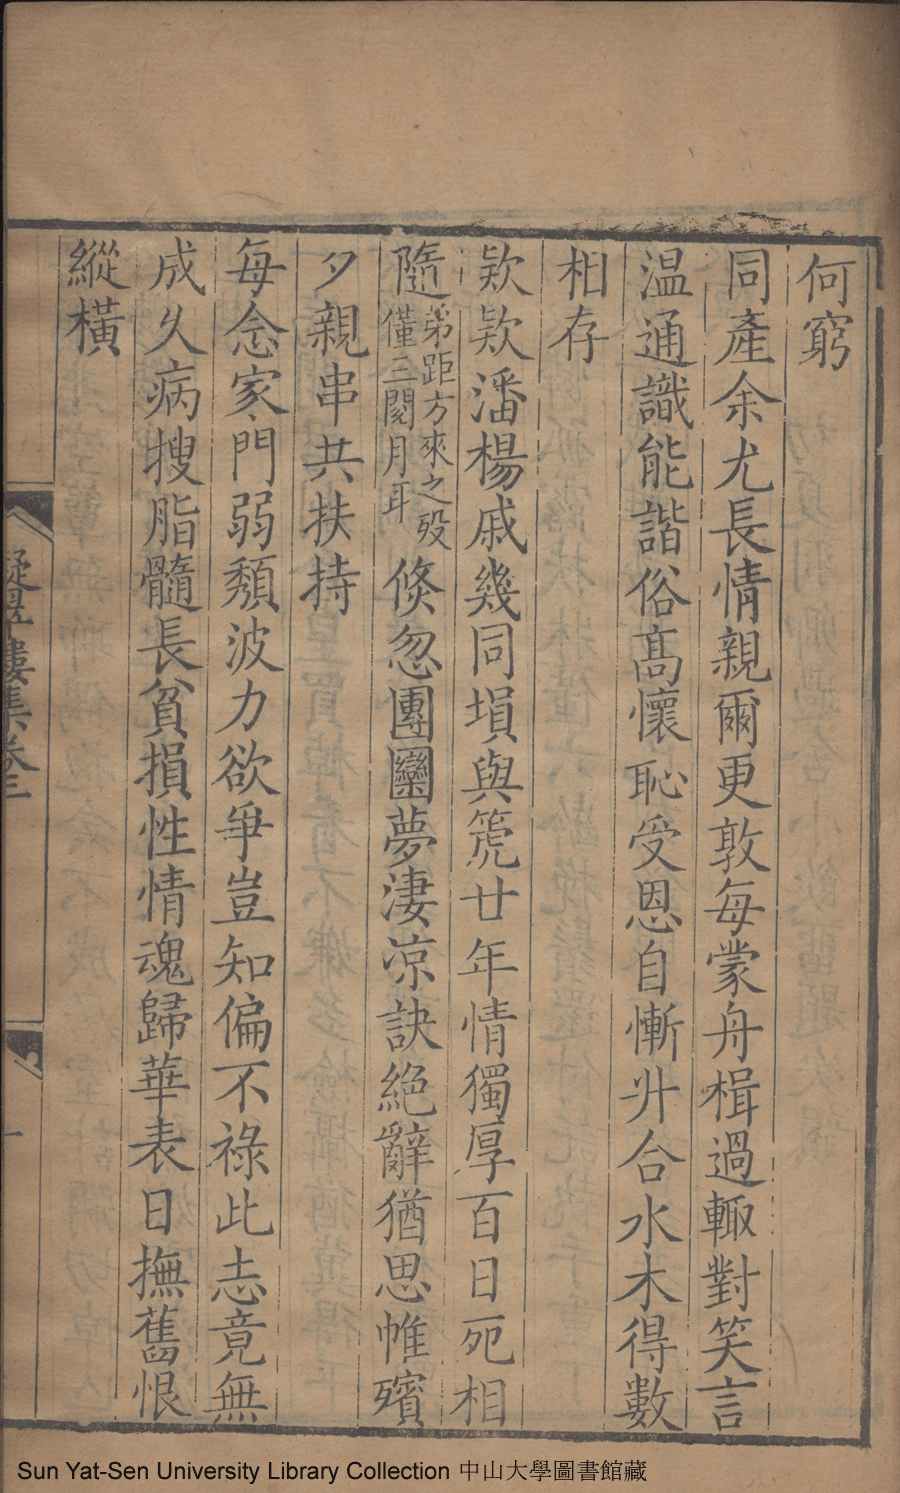 何窮
同產余尤長情親爾更敦每蒙舟楫過輙對笑言
温通識能諧俗高懷恥受恩自慚升合水木得數
相存
欵欵潘楊戚幾同塤與箎廿年情獨厚百日死相
隨弟距方來之歿僅三閱月耳倐忽團圞夢淒凉訣絕辭猶思帷殯
夕親串共扶持
每念家門弱頽波力欲爭豈知偏不祿此志竟無
成久病搜脂髓長貧損性情魂歸華表日撫舊恨
縱橫
樓集卷三
一
Sun Yat-Sen University Library Collection 中山大學圖書館藏